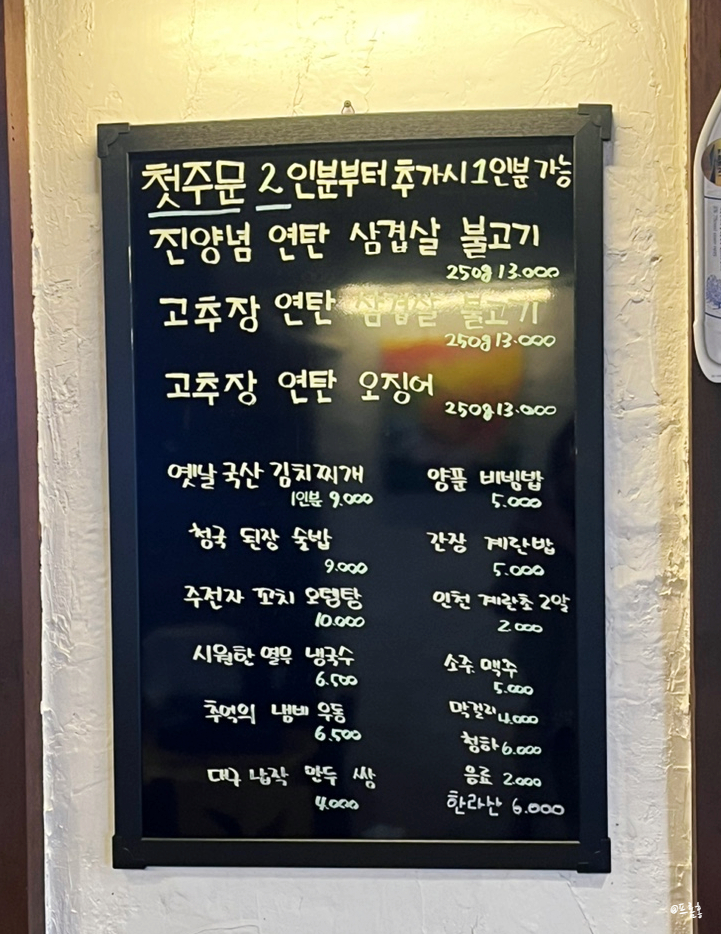 첫주문 2인분부터 추가시 1인분 가능
진양념 연탄 삼겹살 불고기
250g 13.000
고추장 연탄 삼겹살 불고기
250g 13.000
고추장 연탄 오징어
250g 13.000
옛날 국산 김치찌개
1인분 9.000
청국 된장 술밥
9.000
주전자 꼬치 오뎅탕
10.000
시원한 열무 냉국수
6.500
추억의 냄비 우동
6.500
대구 납작 만두 쌈
4.000
양푼 비빔밥
5.000
간장 계란밥
5.000
인천 계란초 2알
2.000
소주 맥주
5.000
막걸리 4.000
청하 6.000
음료 2.000
한라산 6.000